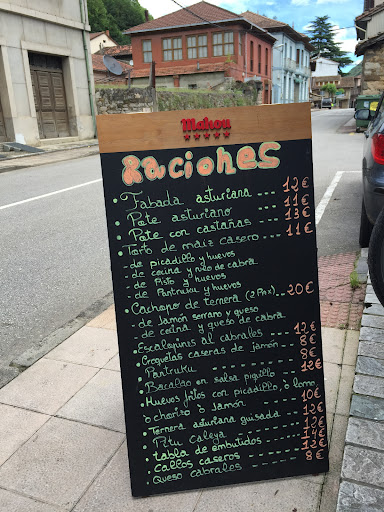 Mahou
Raciones
• Fabada asturiana --- 12€
• Pote asturiano --- 11€
• Pote con castañas --- 13€
• Torto de maiz casero -- 11€
- de picadillo y huevos
- de cecina y queso de cabra
- de Pisto y huevos
- de Pantruku y huevos
• Cachopo de ternera (2 Pax) -- 20€
- de Jamón serrano y queso
- de cecina y queso de cabra
• Escalopines al cabrales - - - - 12€
• Croquetas caseras de jamón - - 8€
• Pantruku - - - - - - - - 8€
• Bacalao en salsa piquillo - - -
• Huevos fritos con picadillo, ò lomo,
ò chorizo ò Jamón - - - - - 10€
• Ternera asturiana guisada - - - 12€
• Pitu Caleya - - - - - -
• tabla de embutidos - - - - - 12€
• Callos caseros - - - - - -
• Queso cabrales - - - - - - 8€